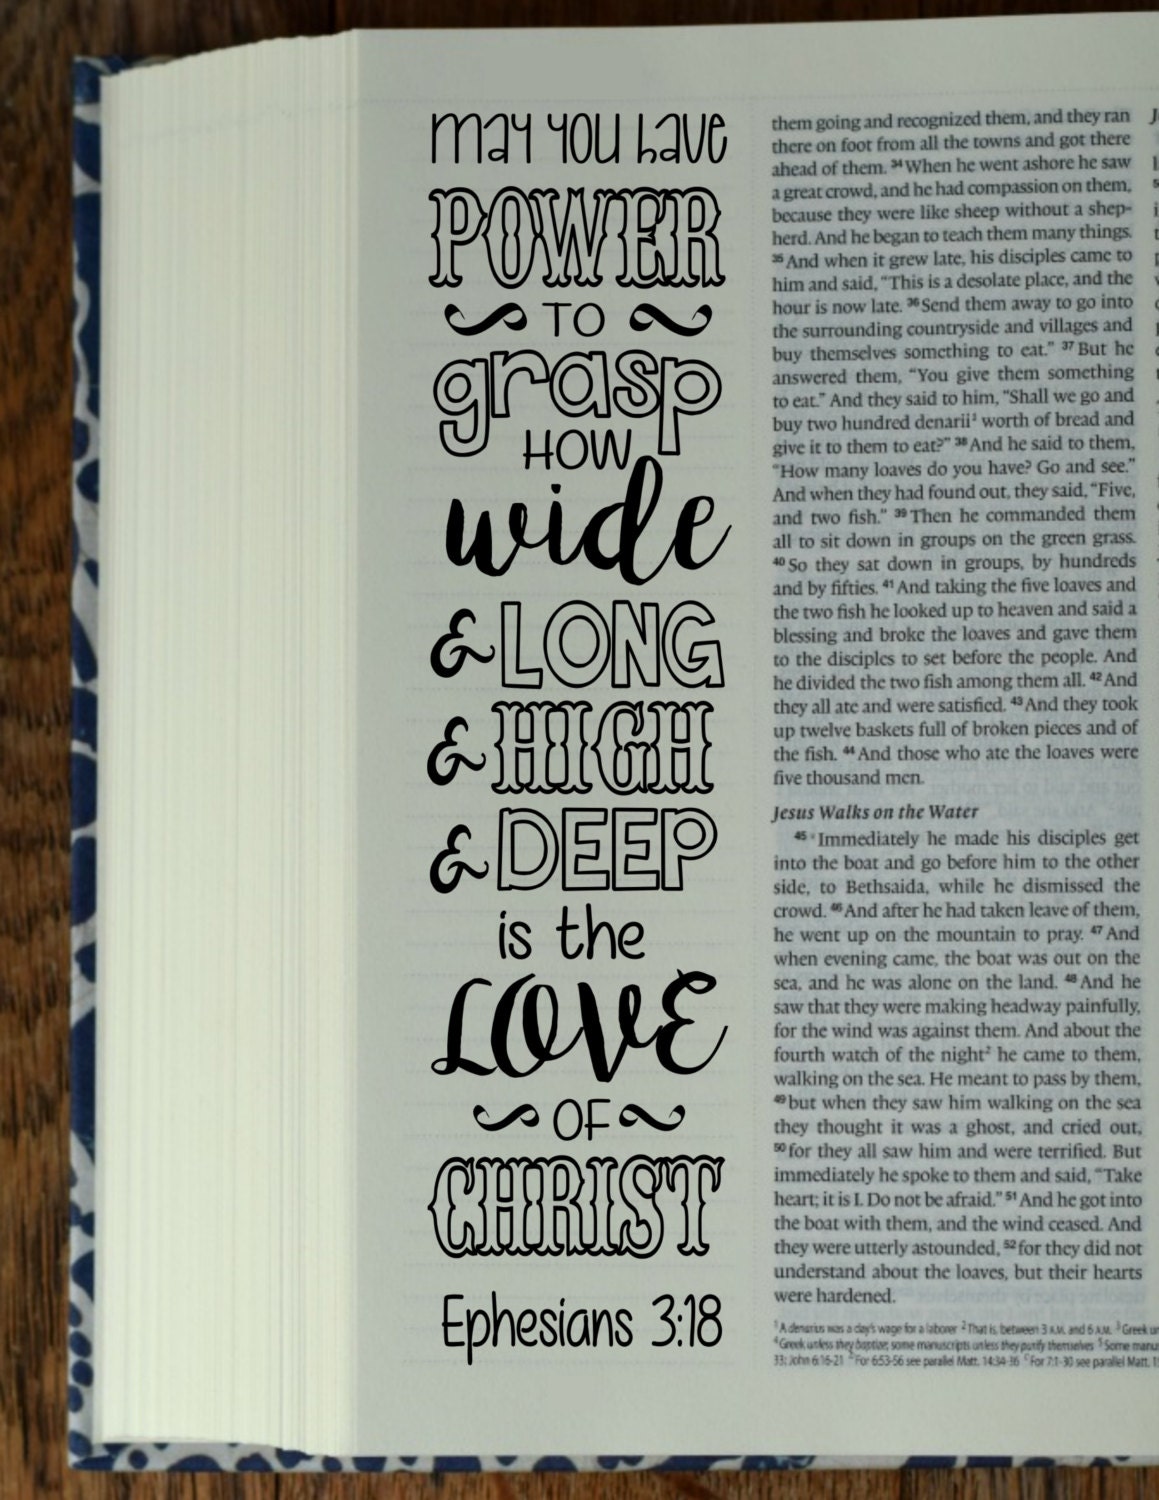 may you have
POWER
TO
grasp
HOW
wide
& LONG
& HIGH
& DEEP
is the
LOVE
OF
CHRIST
Ephesians 3:18
them going and recognized them, and they ran
there on foot from all the towns and got there
ahead of them. 34 When he went ashore he saw
a great crowd, and he had compassion on them,
because they were like sheep without a shep-
herd. And he began to teach them many things.
35 And when it grew late, his disciples came to
him and said, “This is a desolate place, and the
hour is now late. 36 Send them away to go into
the surrounding countryside and villages and
buy themselves something to eat.” 37 But he
answered them, “You give them something
to eat.” And they said to him, “Shall we go and
buy two hundred denarii¹ worth of bread and
give it to them to eat?” 38 And he said to them,
“How many loaves do you have? Go and see.”
And when they had found out, they said, “Five,
and two fish.” 39 Then he commanded them
all to sit down in groups on the green grass.
40 So they sat down in groups, by hundreds
and by fifties. 41 And taking the five loaves and
the two fish he looked up to heaven and said a
blessing and broke the loaves and gave them
to the disciples to set before the people. And
he divided the two fish among them all. 42 And
they all ate and were satisfied. 43 And they took
up twelve baskets full of broken pieces and of
the fish. 44 And those who ate the loaves were
five thousand men.
Jesus Walks on the Water
45 Immediately he made his disciples get
into the boat and go before him to the other
side, to Bethsaida, while he dismissed the
crowd. 46 And after he had taken leave of them,
he went up on the mountain to pray. 47 And
when evening came, the boat was out on the
sea, and he was alone on the land. 48 And he
saw that they were making headway painfully,
for the wind was against them. And about the
fourth watch of the night² he came to them,
walking on the sea. He meant to pass by them,
49 but when they saw him walking on the sea
they thought it was a ghost, and cried out,
50 for they all saw him and were terrified. But
immediately he spoke to them and said, “Take
heart; it is I. Do not be afraid.” 51 And he got into
the boat with them, and the wind ceased. And
they were utterly astounded, 52 for they did not
understand about the loaves, but their hearts
were hardened.
1 A denarius was a day's wage for a laborer 2 That is, between 3 A.M. and 6 A.M. 3 Greek
4 Greek unless they baptize; some manuscripts unless they purify themselves 5 Some
33; John 6:16-21 For 6:53-56 see parallel Matt. 14:34-36 For 7:1-30 see parallel Matt.